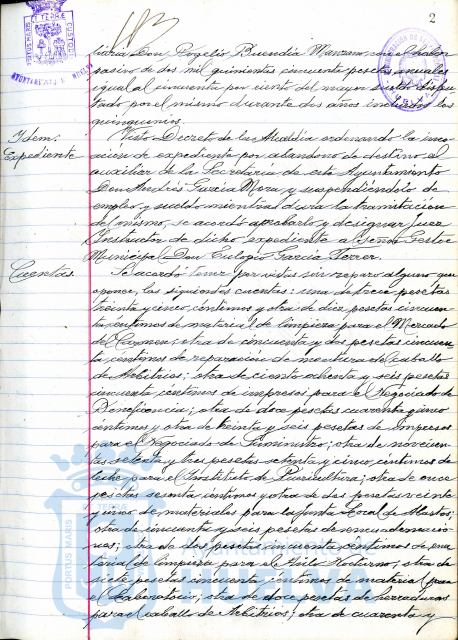 2
liaria Don Rogelio Buendia Manzano con el haber
pasivo de dos mil quinientas cincuenta pesetas anuales
igual al cincuenta por ciento del mayor sueldo disfru-
tado por el mismo durante dos años incluidos los
quinquenios.
Idem:
Expediente
Visto Decreto de la Alcaldia ordenando la incoa-
cion de expediente por abandono de destino al
auxiliar de la Secretaria de este Ayuntamiento
Don Andrés Garcia Mora y suspendiéndolo de
empleo y sueldo mientras dura la tramitacion
del mismo, se acordó aprobarlo y designar Juez
Instructor de dicho expediente al Señor Gestor
Municipal Don Eulogio Garcia
Cuentas.
Se acordó tener por vistas sin reparo alguno que
oponer, las siguientes cuentas: una de trece pesetas
treinta y cinco céntimos y otra de diez pesetas cincuen-
ta céntimos de material de limpieza para el Mercado
del Carmen; otra de cincuenta y dos pesetas cincuen-
ta céntimos de reparación de montura de caballo
de Arbitrios; otra de ciento ochenta y seis pesetas
cincuenta céntimos de impresos para el Negociado de
Beneficencia; otra de doce pesetas cuarenta y cinco
céntimos y otra de treinta y seis pesetas de Impresos
para el Negociado de Suministro; otra de novecien-
tas setenta y tres pesetas setenta y cinco céntimos de
leche para el Instituto de Puericultura; otra de once
pesetas sesenta céntimos y otra de dos pesetas veinte
y cinco de materiales para la Junta Local de
otra de cincuenta y seis pesetas de encuadernacio-
nes; otra de dos pesetas cincuenta céntimos de ma-
terial de limpieza para el Asilo Nocturno; otra de
siete pesetas cincuenta céntimos de material para
el Laboratorio; otra de doce pesetas de herraduras
para el caballo de Arbitrios; otra de cuarenta y
AYUNTAMIENTO DE HUELVA
PORTUS MARIS
Ayuntamiento de
HUELVA